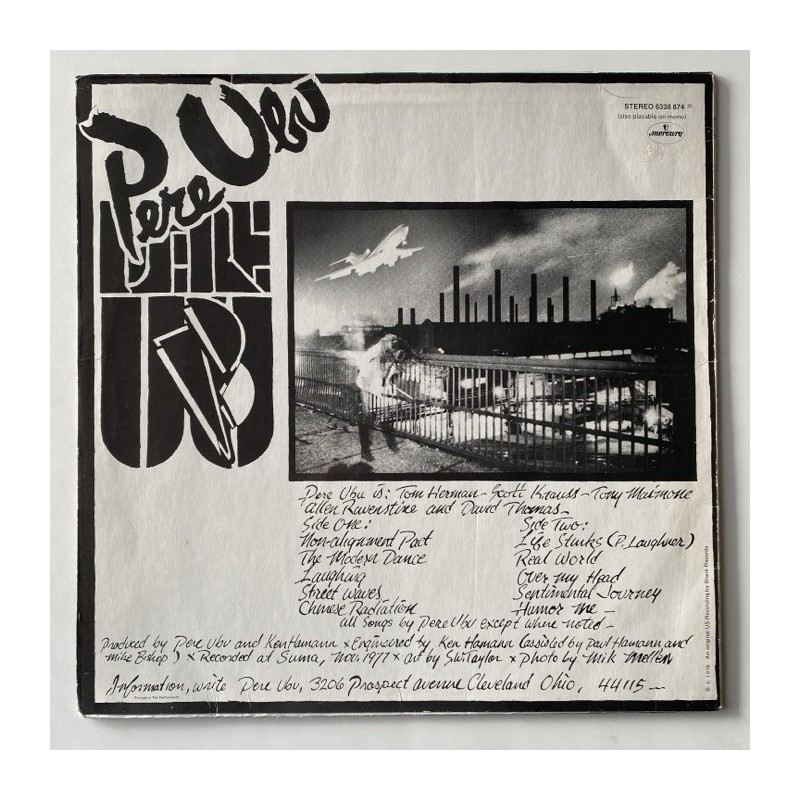 Pere Ubu
STEREO 6338 874
(also playable on mono)
mercury
Pere Ubu is: Tom Herman - Scott Krauss - Tony Maimone
Allen Ravenstine and David Thomas -
Side One:
Non-alignment Pact
The Modern Dance
Laughing
Street Waves
Chinese Radiation
Side Two:
Life Stinks (P. Laughner)
Real World
Over my Head
Sentimental Journey
Humor me -
all songs by Pere Ubu except where noted -
Produced by Pere Ubu and Ken Hamann x Engineered by Ken Hamann (assisted by Paul Hamann and
Mike Bishop) x Recorded at Suma, Nov. 1977 x Art by S.W. Taylor x photo by Mik Mellen
Information, write Pere Ubu, 3206 Prospect avenue Cleveland Ohio, 44115 -
Printed in The Netherlands
℗ © 1978 An original US Recording by Blank Records